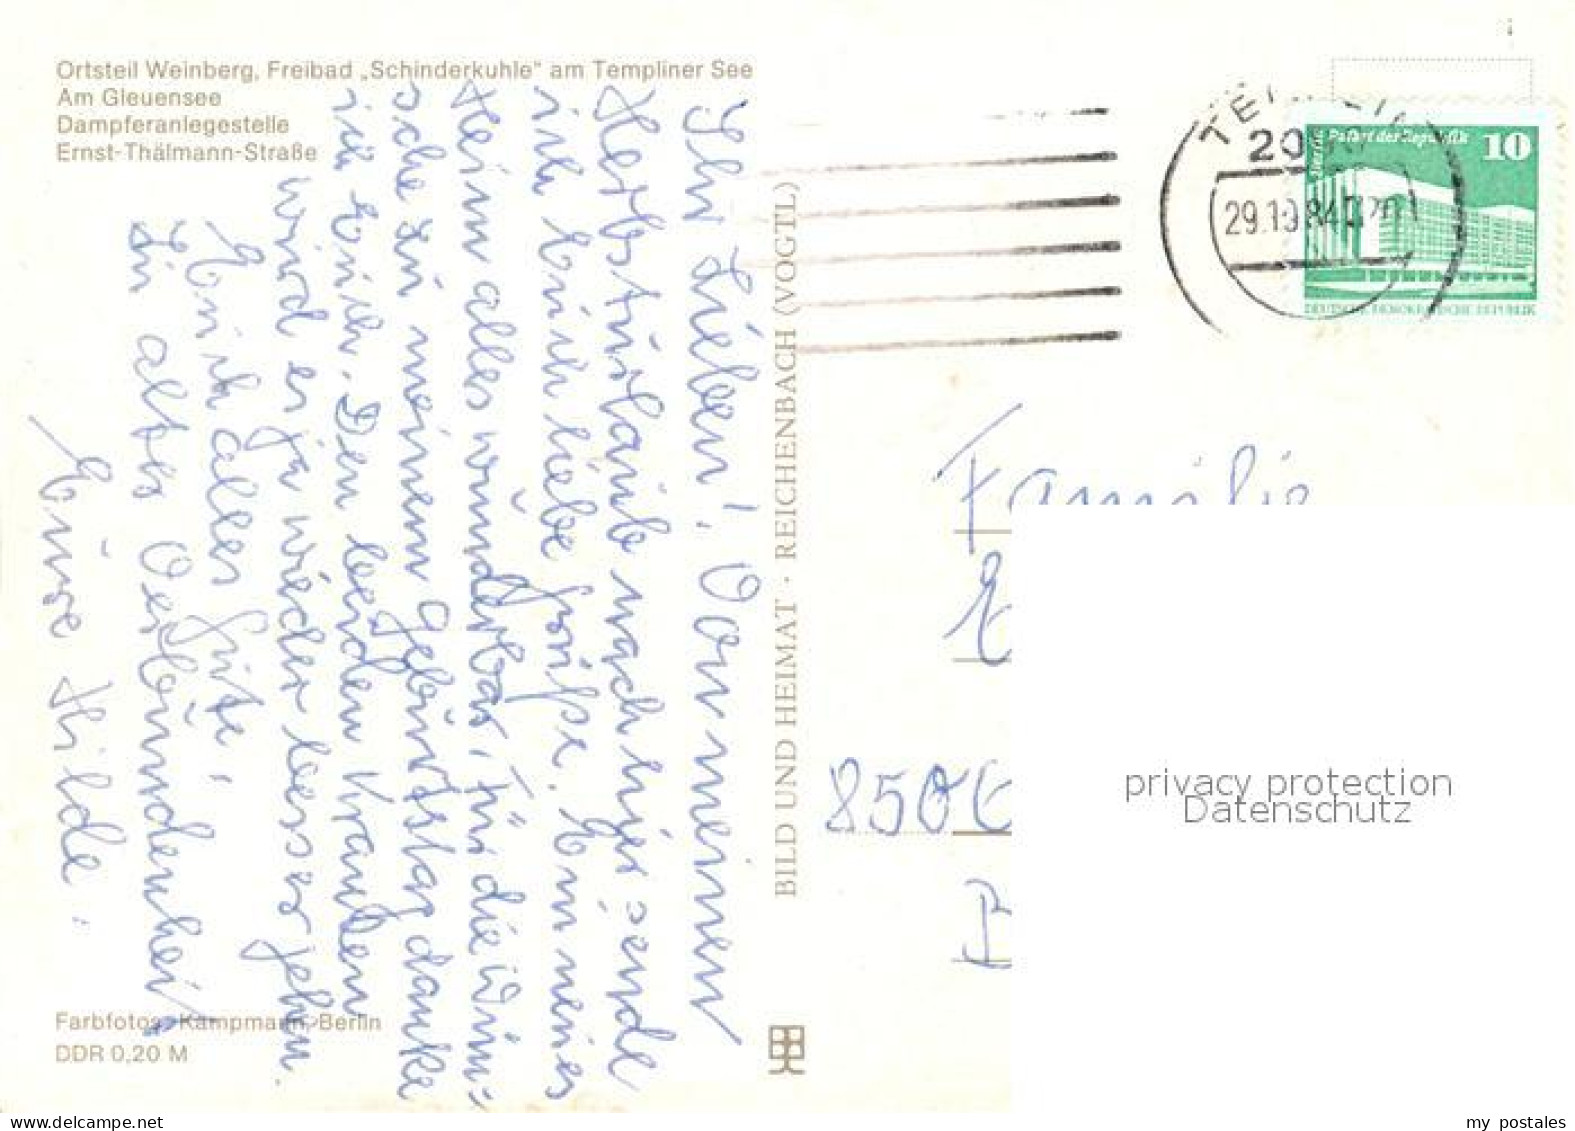 Ortsteil Weinberg, Freibad „Schinderkuhle“ am Templiner See
Am Gleuensee
Dampferanlegestelle
Ernst-Thälmann-Straße
Ihr Lieben! Von meinem
Herbsturlaub nach hier sende
ich Euch liebe Grüße. Ein neues
Heim alles wunderbar, für die Wün=
sche zu meinem Geburtstag danke
ich Euch. Den beiden Kranken
wird es ja wieder besser gehen.
Euch alles Gute,
In alter Verbundenheit
Eure Hilde.
Farbfotos: Kampmann, Berlin
DDR 0,20 M
BILD UND HEIMAT · REICHENBACH (VOGTL)
TEMPLIN
20
29.10.84
Palast der Republik
10
DEUTSCHE DEMOKRATISCHE REPUBLIK
Familie
E
850
P
privacy protection
Datenschutz
www.delcampe.net
my_postales